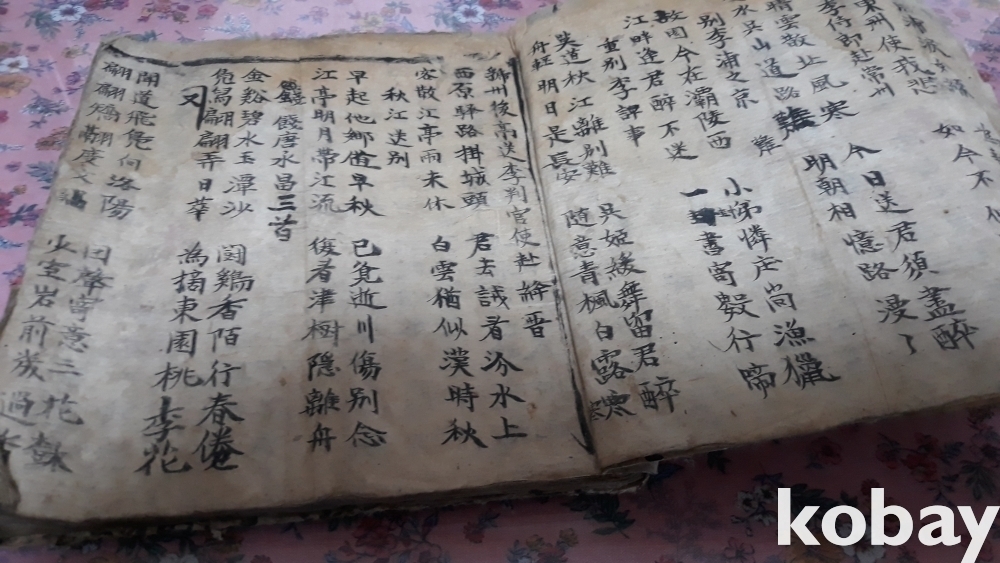 如今不
東州使我悲
李侍郎赴常州
晴雲散北風寒 今日送君須盡醉
水吳山道路難 明朝相憶路漫了
別李浦之京
故園今在灞陵西 小弟憐庄尚漁獵
江畔逢君醉不迷 一書寄數行啼
重別李評事
莫道秋江離別難 吳姬緩舞留君醉
舟船明日是長安 隨意青楓白露寒
州後亭送李判官使赴絳晋
西原驛路掛城頭 君去試看汾水上
客散江亭雨未休 白雲猶似漢時秋
秋江送別
早起他鄉值早秋 已覓逝川傷別念
江亭明月帶江流 復看津樹隱離舟
餞唐永昌三首
金谿碧水玉潭沙 鬪鷄香陌行春倦
鳧舄翩翩弄日華 為摘東園桃李花
又
聞道飛鳧向洛陽 回聲寄意三花
翩翩矯翮度文 少室岩前幾過
kobay